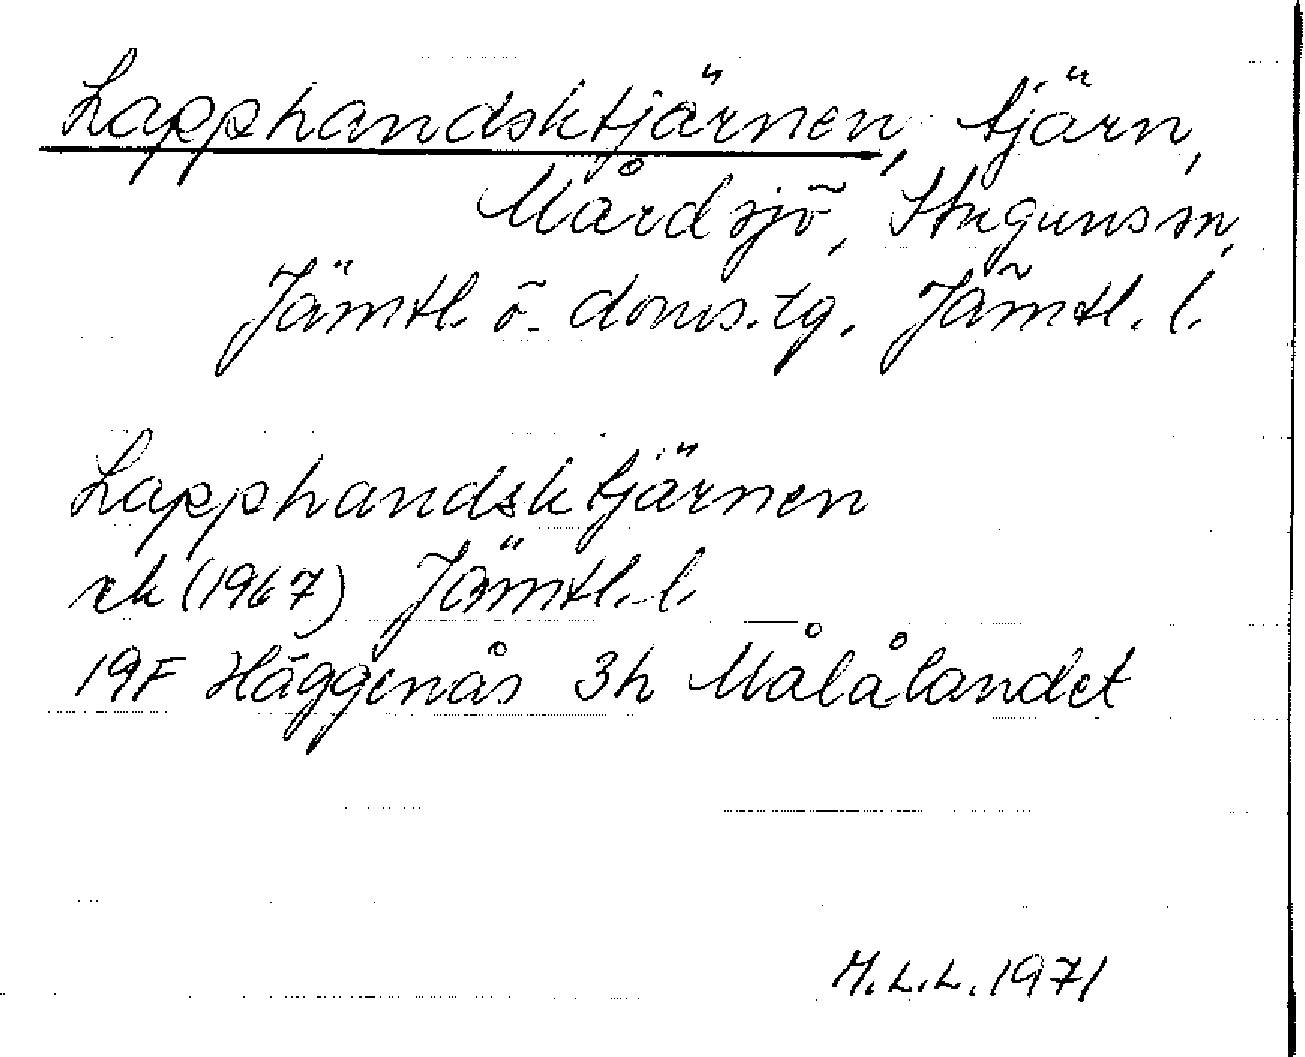 Lapphandsktjärnen, tjärn,
Mårdsjö, Stuguns sn,
Jämtl. ö. doms.tg. Jämtl. l.
Lapphandsktjärnen
rek (1967) Jämtl. l.
19F Häggenås 3h Målålandet
M.L.L. 1971